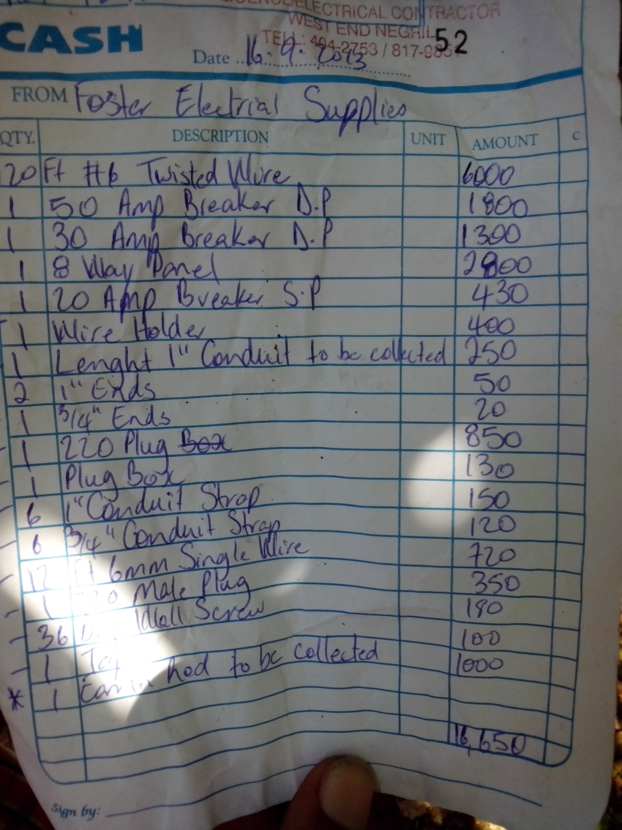 ELECTRICAL CONTRACTOR
WEST END NEGRIL
CASH
52
Date .. 16.9.2013
FROM Foster Electrial Supplies
QTY. DESCRIPTION UNIT AMOUNT C
20 Ft #6 Twisted Wire 6000
1 50 Amp Breaker D.P 1800
1 30 Amp Breaker D.P 1300
1 8 Way Panel 2800
1 20 Amp Breaker S.P 430
1 Wire Holder 400
1 Lenght 1" Conduit to be collected 250
2 1" Ends 50
1 3/4" Ends 20
1 220 Plug Box 850
1 Plug Box 130
6 1" Conduit Strap 150
6 3/4" Conduit Strap 120
12 Ft 6mm Single Wire 720
1 Male Plug 350
36 Wall Screw 180
1 100
* 1 hod to be collected 1000
16,650
Sign by: